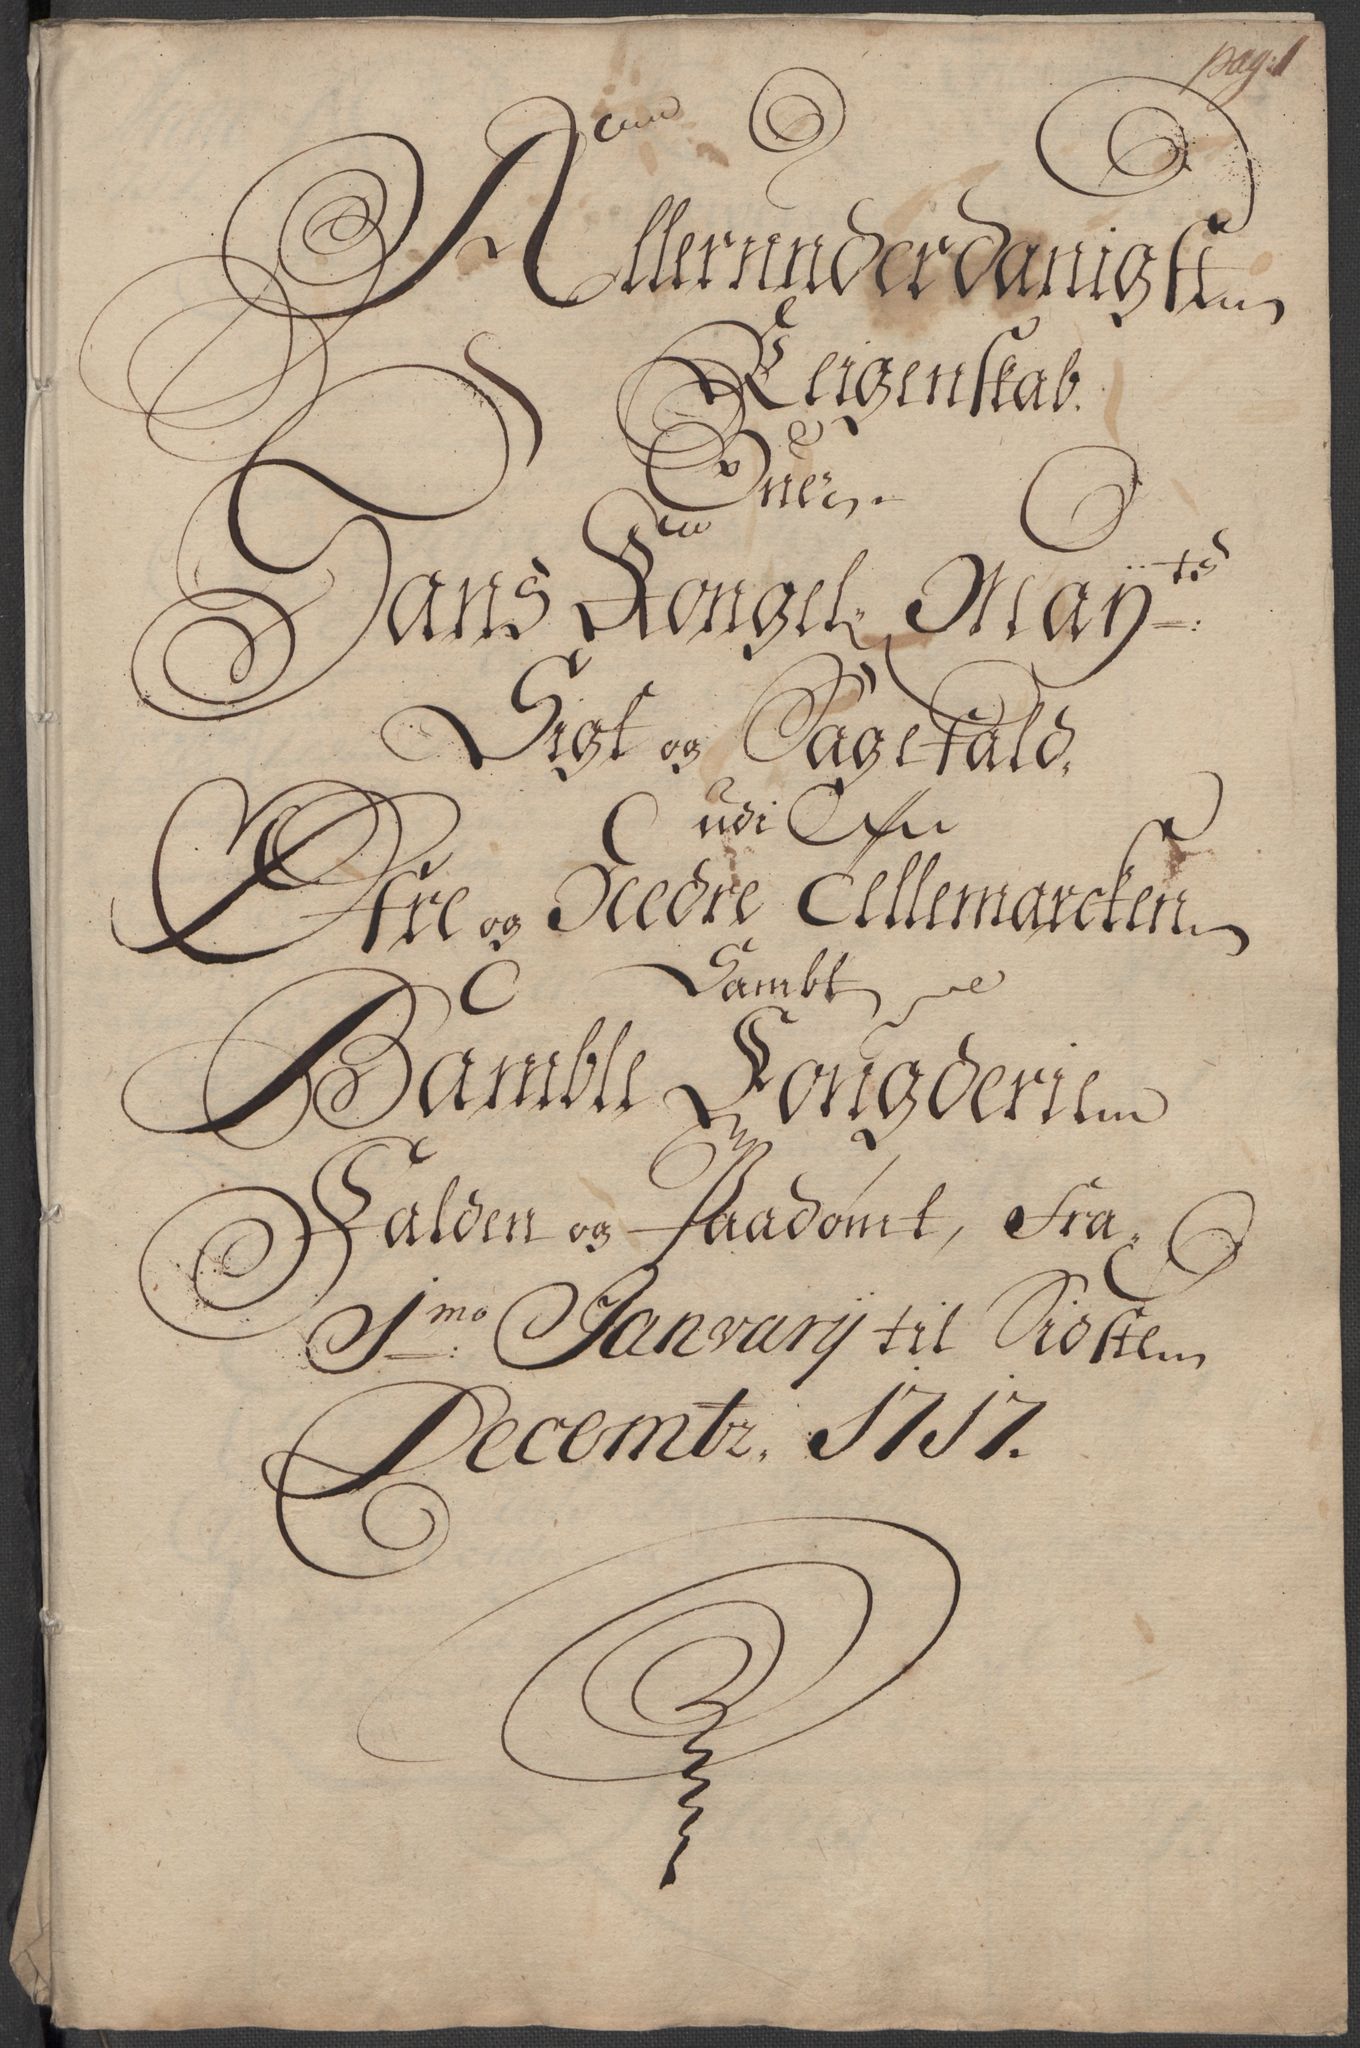 pag: 1
Allerunderdanigste
Reigenskab
Over
Hans Kongel: Maÿts:
Sigt og Sagefald
udi
Øfre og Nedre Tellemarcken
Sambt
Bamble Fougderie
Falden og Paadømt, Fra
1mo: Januarÿ til Sidste
Decembr. 1717.